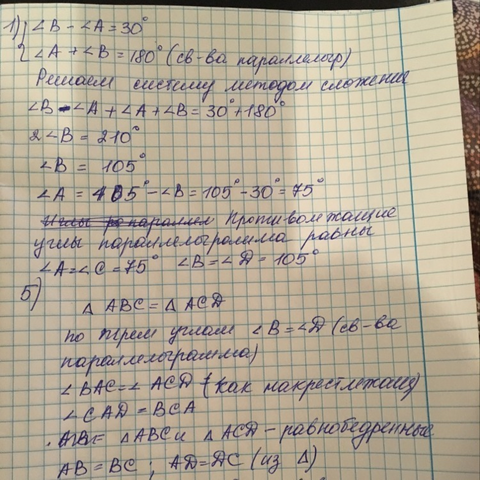 1) { ∠B - ∠A = 30°
∠A + ∠B = 180° (св-ва параллелогр)
Решаем систему методом сложения
∠B - ∠A + ∠A + ∠B = 30° + 180°
2∠B = 210°
∠B = 105°
∠A = 105° - ∠B = 105° - 30° = 75°
Противолежащие
углы параллелограмма равны
∠A = ∠C = 75° ∠B = ∠D = 105°
5)
△ ABC = △ ACD
по трем углам ∠B = ∠D (св-ва
параллелограмма)
∠BAC = ∠ACD (как накрестлежащ)
∠CAD = BCA
△ABC и △ACD - равнобедренные
AB = BC ; AD = DC (из △)